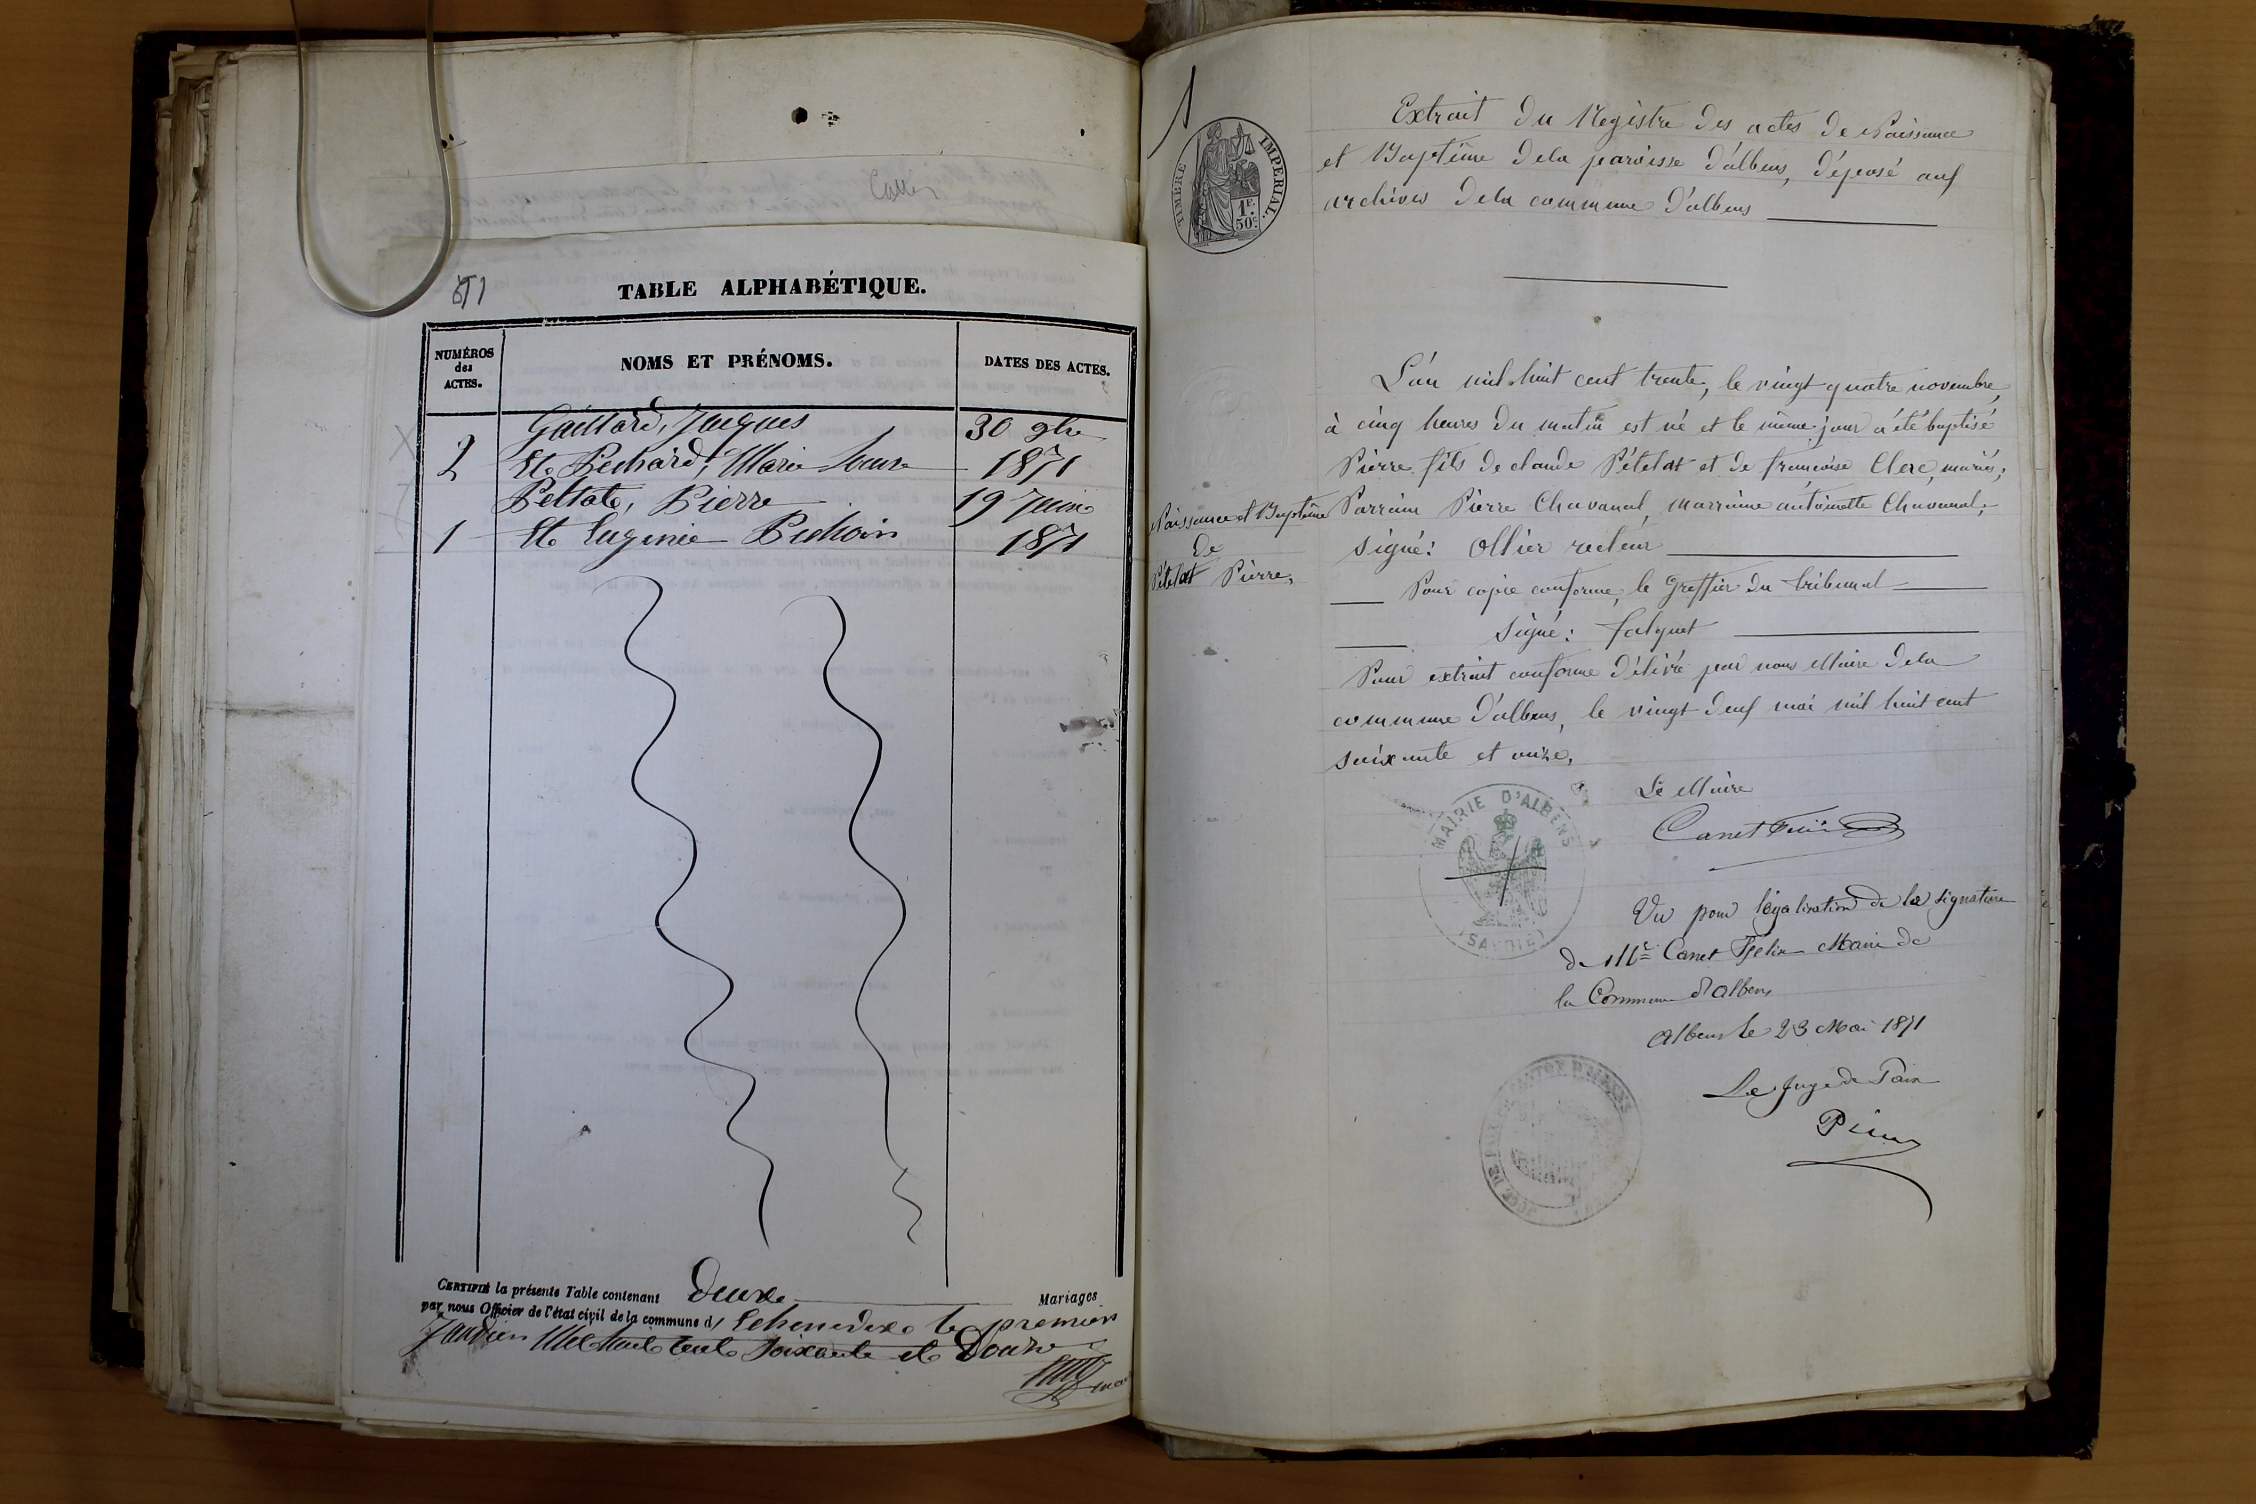 TABLE ALPHABÉTIQUE.
NUMÉROS
des
ACTES.
NOMS ET PRÉNOMS.
DATES DES ACTES.
Gaillard, Jacques 30 9bre
2 Et Pechard, Marie 1871
Peltat, Pierre 19 Juin
1 Et Eugenie 1871
CERTIFIÉ la présente Table contenant Deux Mariages
par nous Officier de l'état civil de la commune d le premier
Janvier Mil huit cent soixante et Douze
1
TIMBRE IMPÉRIAL.
1F.
50c.
Extrait du Registre des actes de Naissance
et Baptême dela paroisse d'albens, déposé aux
archives dela commune d'albens
L'an mil huit cent trente, le vingt quatre novembre,
à cinq heures du matin est né et le même jour a été baptisé
Pierre fils de claude Pételat et de françoise Clerc, mariés,
Parrain Pierre Chavanel, marraine antoinette Chavanel,
signé: Ollier recteur
Naissance et Baptême
De
Pételat Pierre,
Pour copie conforme, le Greffier du tribunal
signé: falquet
Pour extrait conforme délivré par nous Maire dela
commune d'albens, le vingt deux mai mil huit cent
soixante et onze,
Le Maire
Canet Felix
MAIRIE D'ALBENS
(SAVOIE)
Vu pour légalisation de la signature
de Mr Canet Felix Maire de
la Commune d'Albens
Albens le 23 Mai 1871
Le Juge de Paix